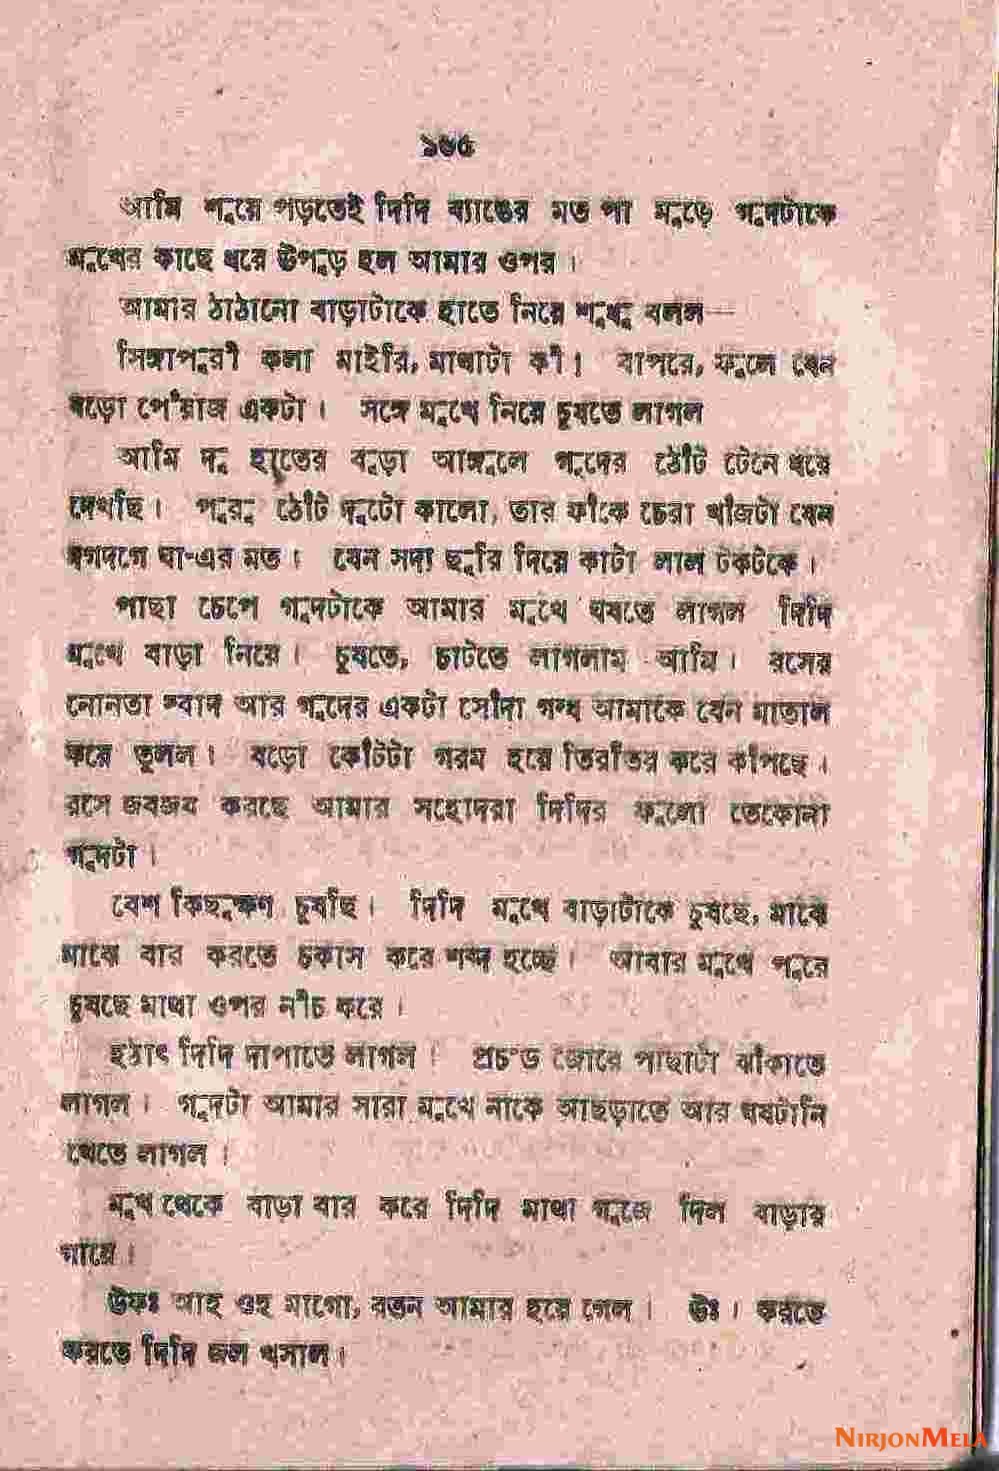 ১৬৫
আমি শুয়ে পড়তেই দিদি ব্যাঙের মত পা মুড়ে গুদটাকে
মুখের কাছে ধরে উপুড় হল আমার ওপর।
আমার ঠাঠানো বাড়াটাকে হাতে নিয়ে শুধু বলল—
সিঙ্গাপুরী কলা মাইরি, মাথাটা কী! বাপরে, ফুলে যেন
বড়ো পেঁয়াজ একটা। সঙ্গে মুখে নিয়ে চুষতে লাগল
আমি দু হাতের বুড়ো আঙ্গুলে গুদের ঠোঁট টেনে ধরে
দেখছি। পুরু ঠোঁট দুটো কালো, তার ফাঁকে চেরা খাঁজটা যেন
দগদগে ঘা-এর মত। যেন সদ্য ছুরি দিয়ে কাটা লাল টকটকে।
পাছা চেপে গুদটাকে আমার মুখে ঘষতে লাগল দিদি
মুখে বাড়া নিয়ে। চুষতে, চাটতে লাগলাম আমি। রসের
নোনতা স্বাদ আর গুদের একটা সোঁদা গন্ধ আমাকে যেন মাতাল
করে তুলল। বড়ো কোঁটটা গরম হয়ে তিরতির করে কাঁপছে।
রসে জবজব করছে আমার সহোদরা দিদির ফুলো তেকোনা
গুদটা।
বেশ কিছুক্ষণ চুষছি। দিদি মুখে বাড়াটাকে চুষছে, মাঝে
মাঝে বার করতে চকাস করে শব্দ হচ্ছে। আবার মুখে পুরে
চুষছে মাথা ওপর নীচ করে।
হঠাৎ দিদি দাপাতে লাগল। প্রচণ্ড জোরে পাছাটা ঝাঁকাতে
লাগল। গুদটা আমার সারা মুখে নাকে আছড়াতে আর ঘষটানি
খেতে লাগল।
মুখ থেকে বাড়া বার করে দিদি মাথা গুজে দিল বাড়ার
গায়ে।
উফঃ আহ ওহ মাগো, রতন আমার হয়ে গেল। উঃ। করতে
করতে দিদি জল খসাল।
NIRJONMELA